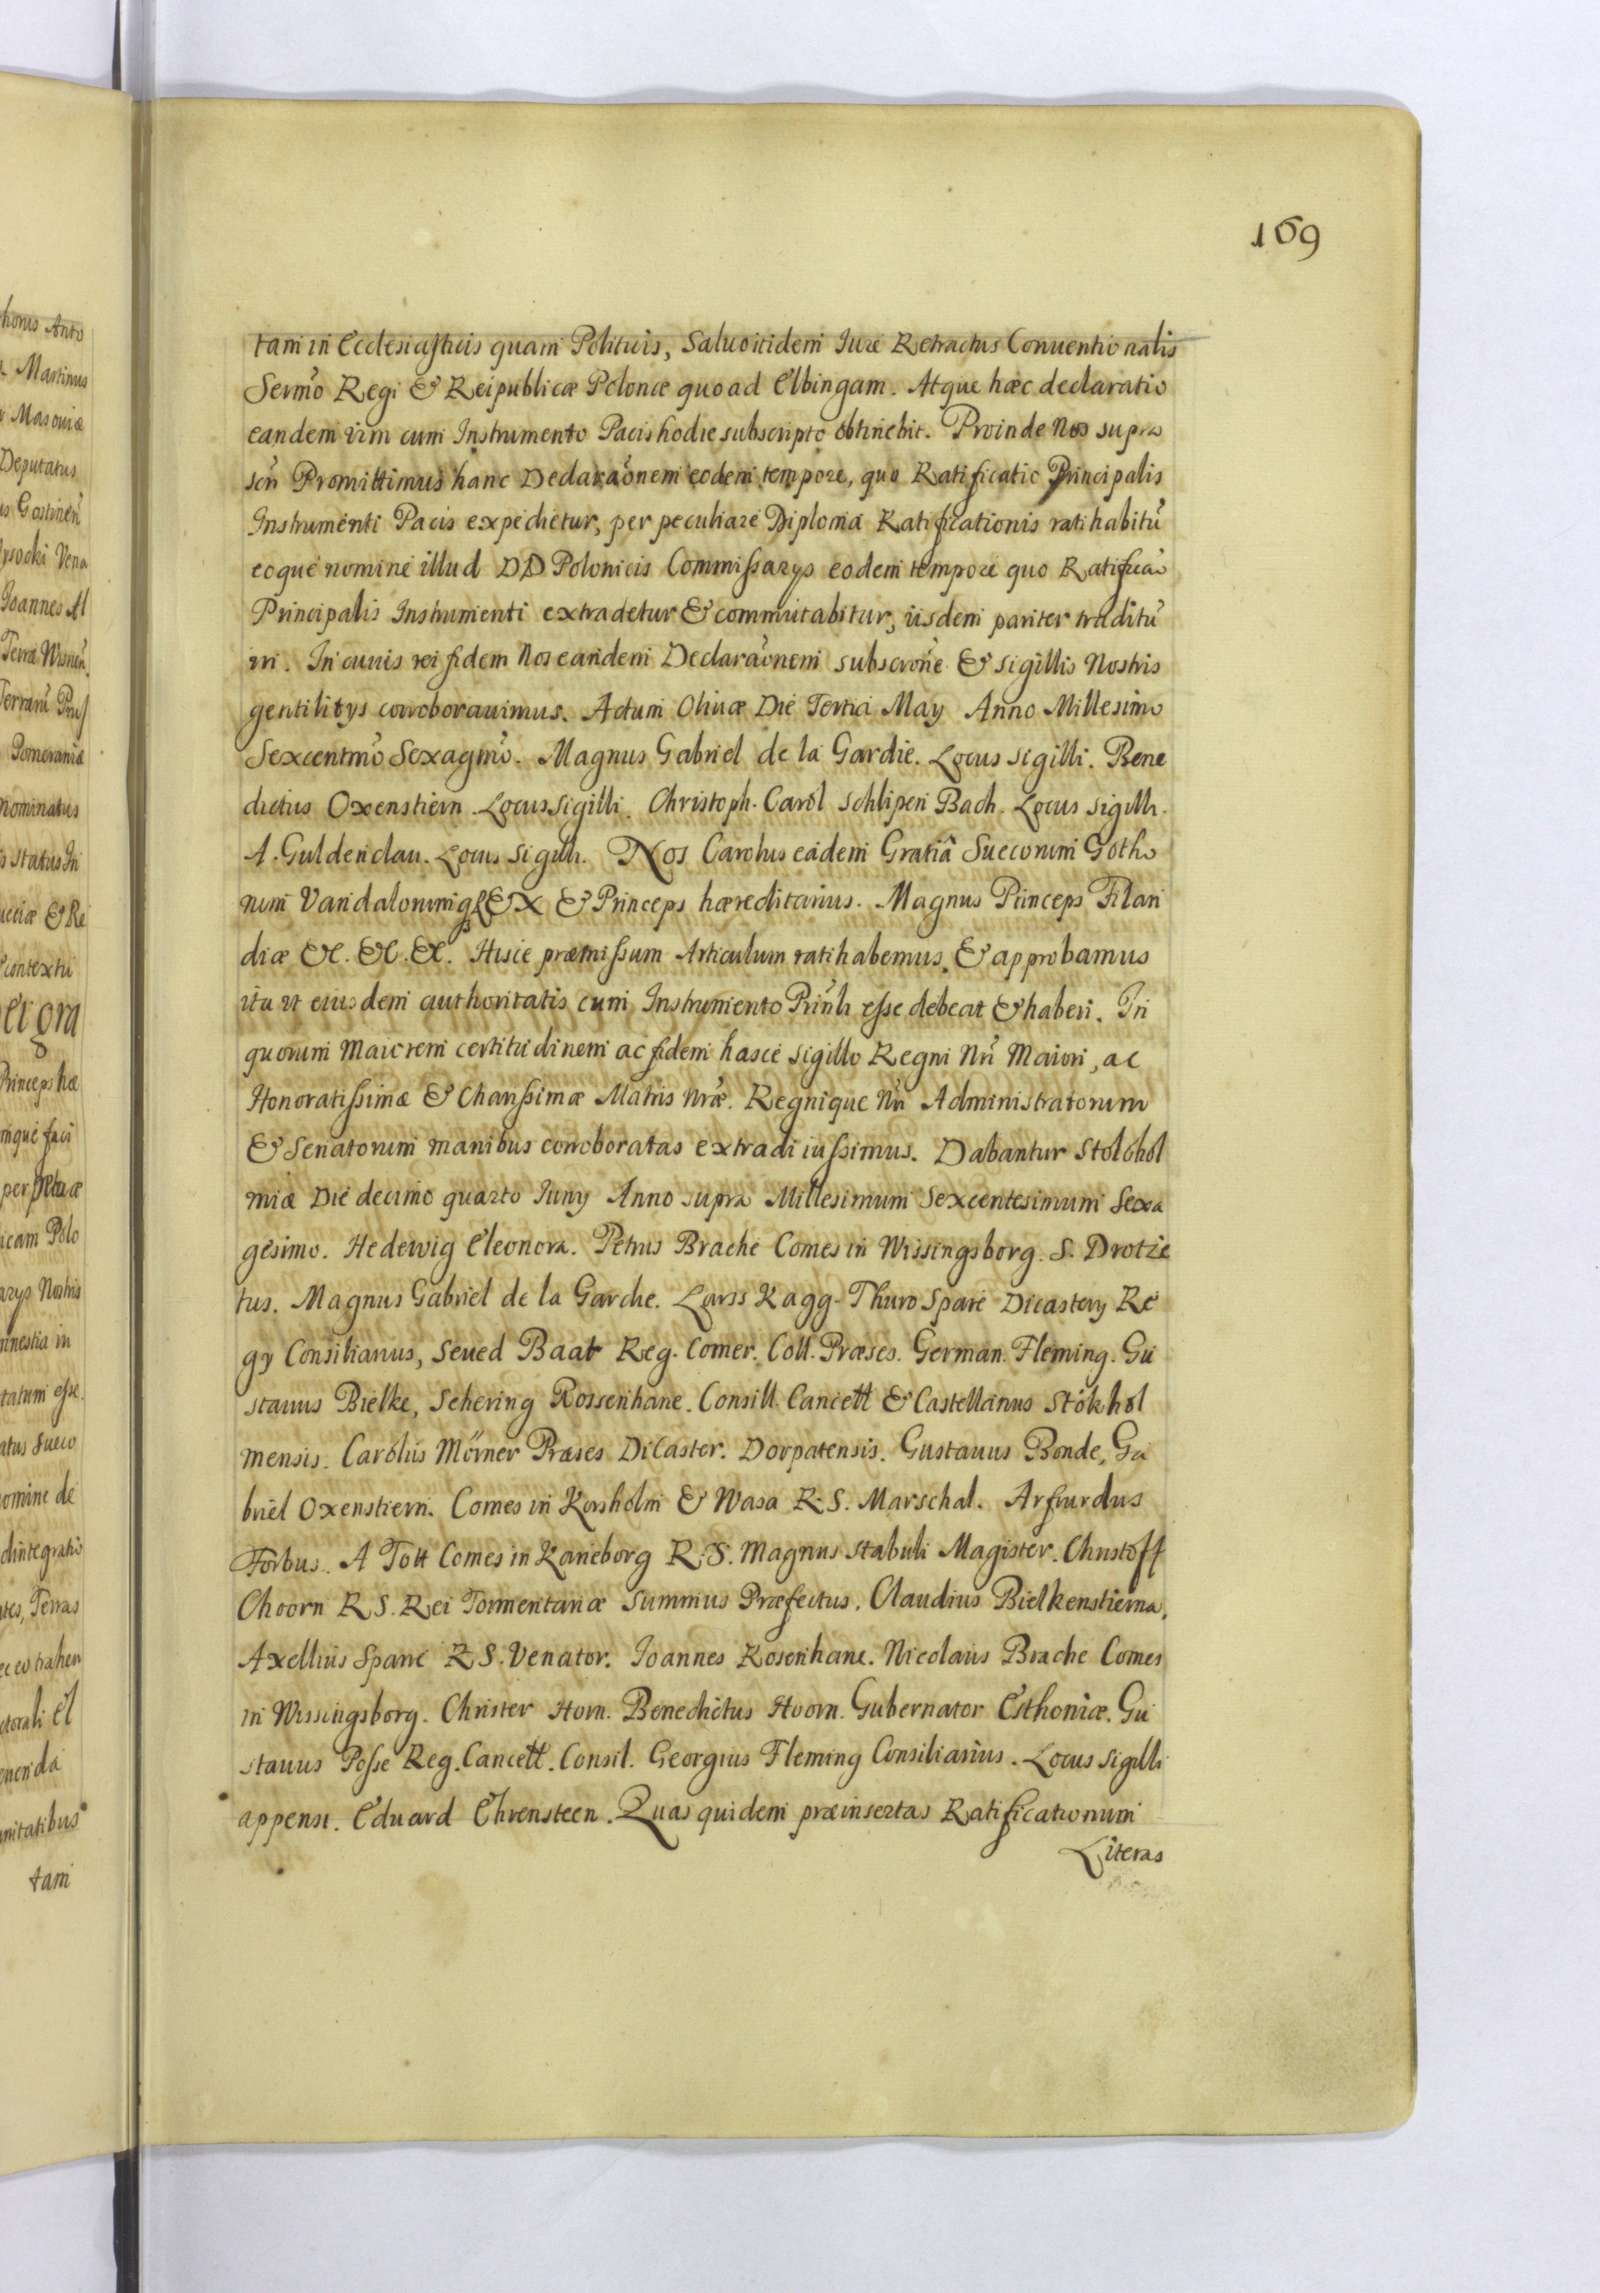 169
tam in Ecclesiasticis quam Politicis, Salvo itidem Iure Retractus Conventionalis
Sermo Regi & Reipublicæ Polonæ quoad Elbingam. Atque hæc declaratio
eandem vim cum Instrumento Pacis hodie subscripto obtinebit. Proinde Nos supra
scri Promittimus hanc Declaraonem eodem tempore, quo Ratificatio Principalis
Instrumenti Pacis expedietur, per peculiare Diploma Ratificationis ratihabitu
eoque nomine illud DD Polonicis Commissarys eodem tempore quo Ratificao
Principalis Instrumenti extradetur & commutabitur, iisdem pariter traditu
iri. In cuius rei fidem Nos eandem Declaraonem subscrone & sigillis Nostris
gentilitys corroboravimus. Actum Olivæ Die Tertia May Anno Millesimo
Sexcentmo Sexagmo. Magnus Gabriel de la Gardie. Locus sigilli. Bene
dictus Oxenstiern. Locus sigilli. Christoph. Carol Schlipen Bach. Locus sigilli.
A. Guldenclau. Locus Sigilli. Nos Carolus eadem Gratiâ Suecorum Gotho
rum Vandalorumq REX & Princeps hæreditarius. Magnus Princeps Filan
diæ &c. &c. &c. Hisce præmissum Articulum ratihabemus, & approbamus
ita ut eiusdem authoritatis cum Instrumento Prinli esse debeat & haberi. In
quorum Maiorem certitudinem ac fidem hasce sigillo Regni Nri Maiori, ac
Honoratissimæ & Charissimæ Matris Nræ. Regnique Nri Administratorum
& Senatorum manibus corroboratas extradi iussimus. Dabantur Stolohol
miæ Die decimo quarto Iuny Anno supra Millesimum Sexcentesimum Sexa
gesimo. Hedewig Eleonora. Petrus Brache Comes in Wissingsborg. S. Drotze
tus. Magnus Gabriel de la Gardie. Larss Kagg. Thuro Spare Dicastery Re
gy Consiliarius, Seued Baat Reg. Comer. Coll. Præses. German. Fleming. Gu
stauus Bielke, Schering Rossenhane. Consill. Cancell & Castellanus Stokhol
mensis. Carolus Mörner Præses Dicaster. Dorpatensis. Gustauus Bonde, Ga
briel Oxenstiern. Comes in Korsholm & Wasa R. S. Marschal. Arfvurdus
Forbus. A Tott Comes in Kaneborg R. S. Magnus Stabuli Magister. Christoff
Choorn R S. Rei Tormentariæ Summus Præfectus. Claudius Bielkenstierna.
Axellius Sparre R S. Venator. Ioannes Rosenhane. Nicolaus Brache Comes
in Wissingsborg. Christer Horn. Benedictus Hoorn. Gubernator Esthoniæ. Gu
stauus Posse Reg. Cancell. Consil. Georgius Fleming Consiliarius. Locus sigilli
appensi. Eduard Ehrensteen. Quas quidem præinsertas Ratificationum
Literas